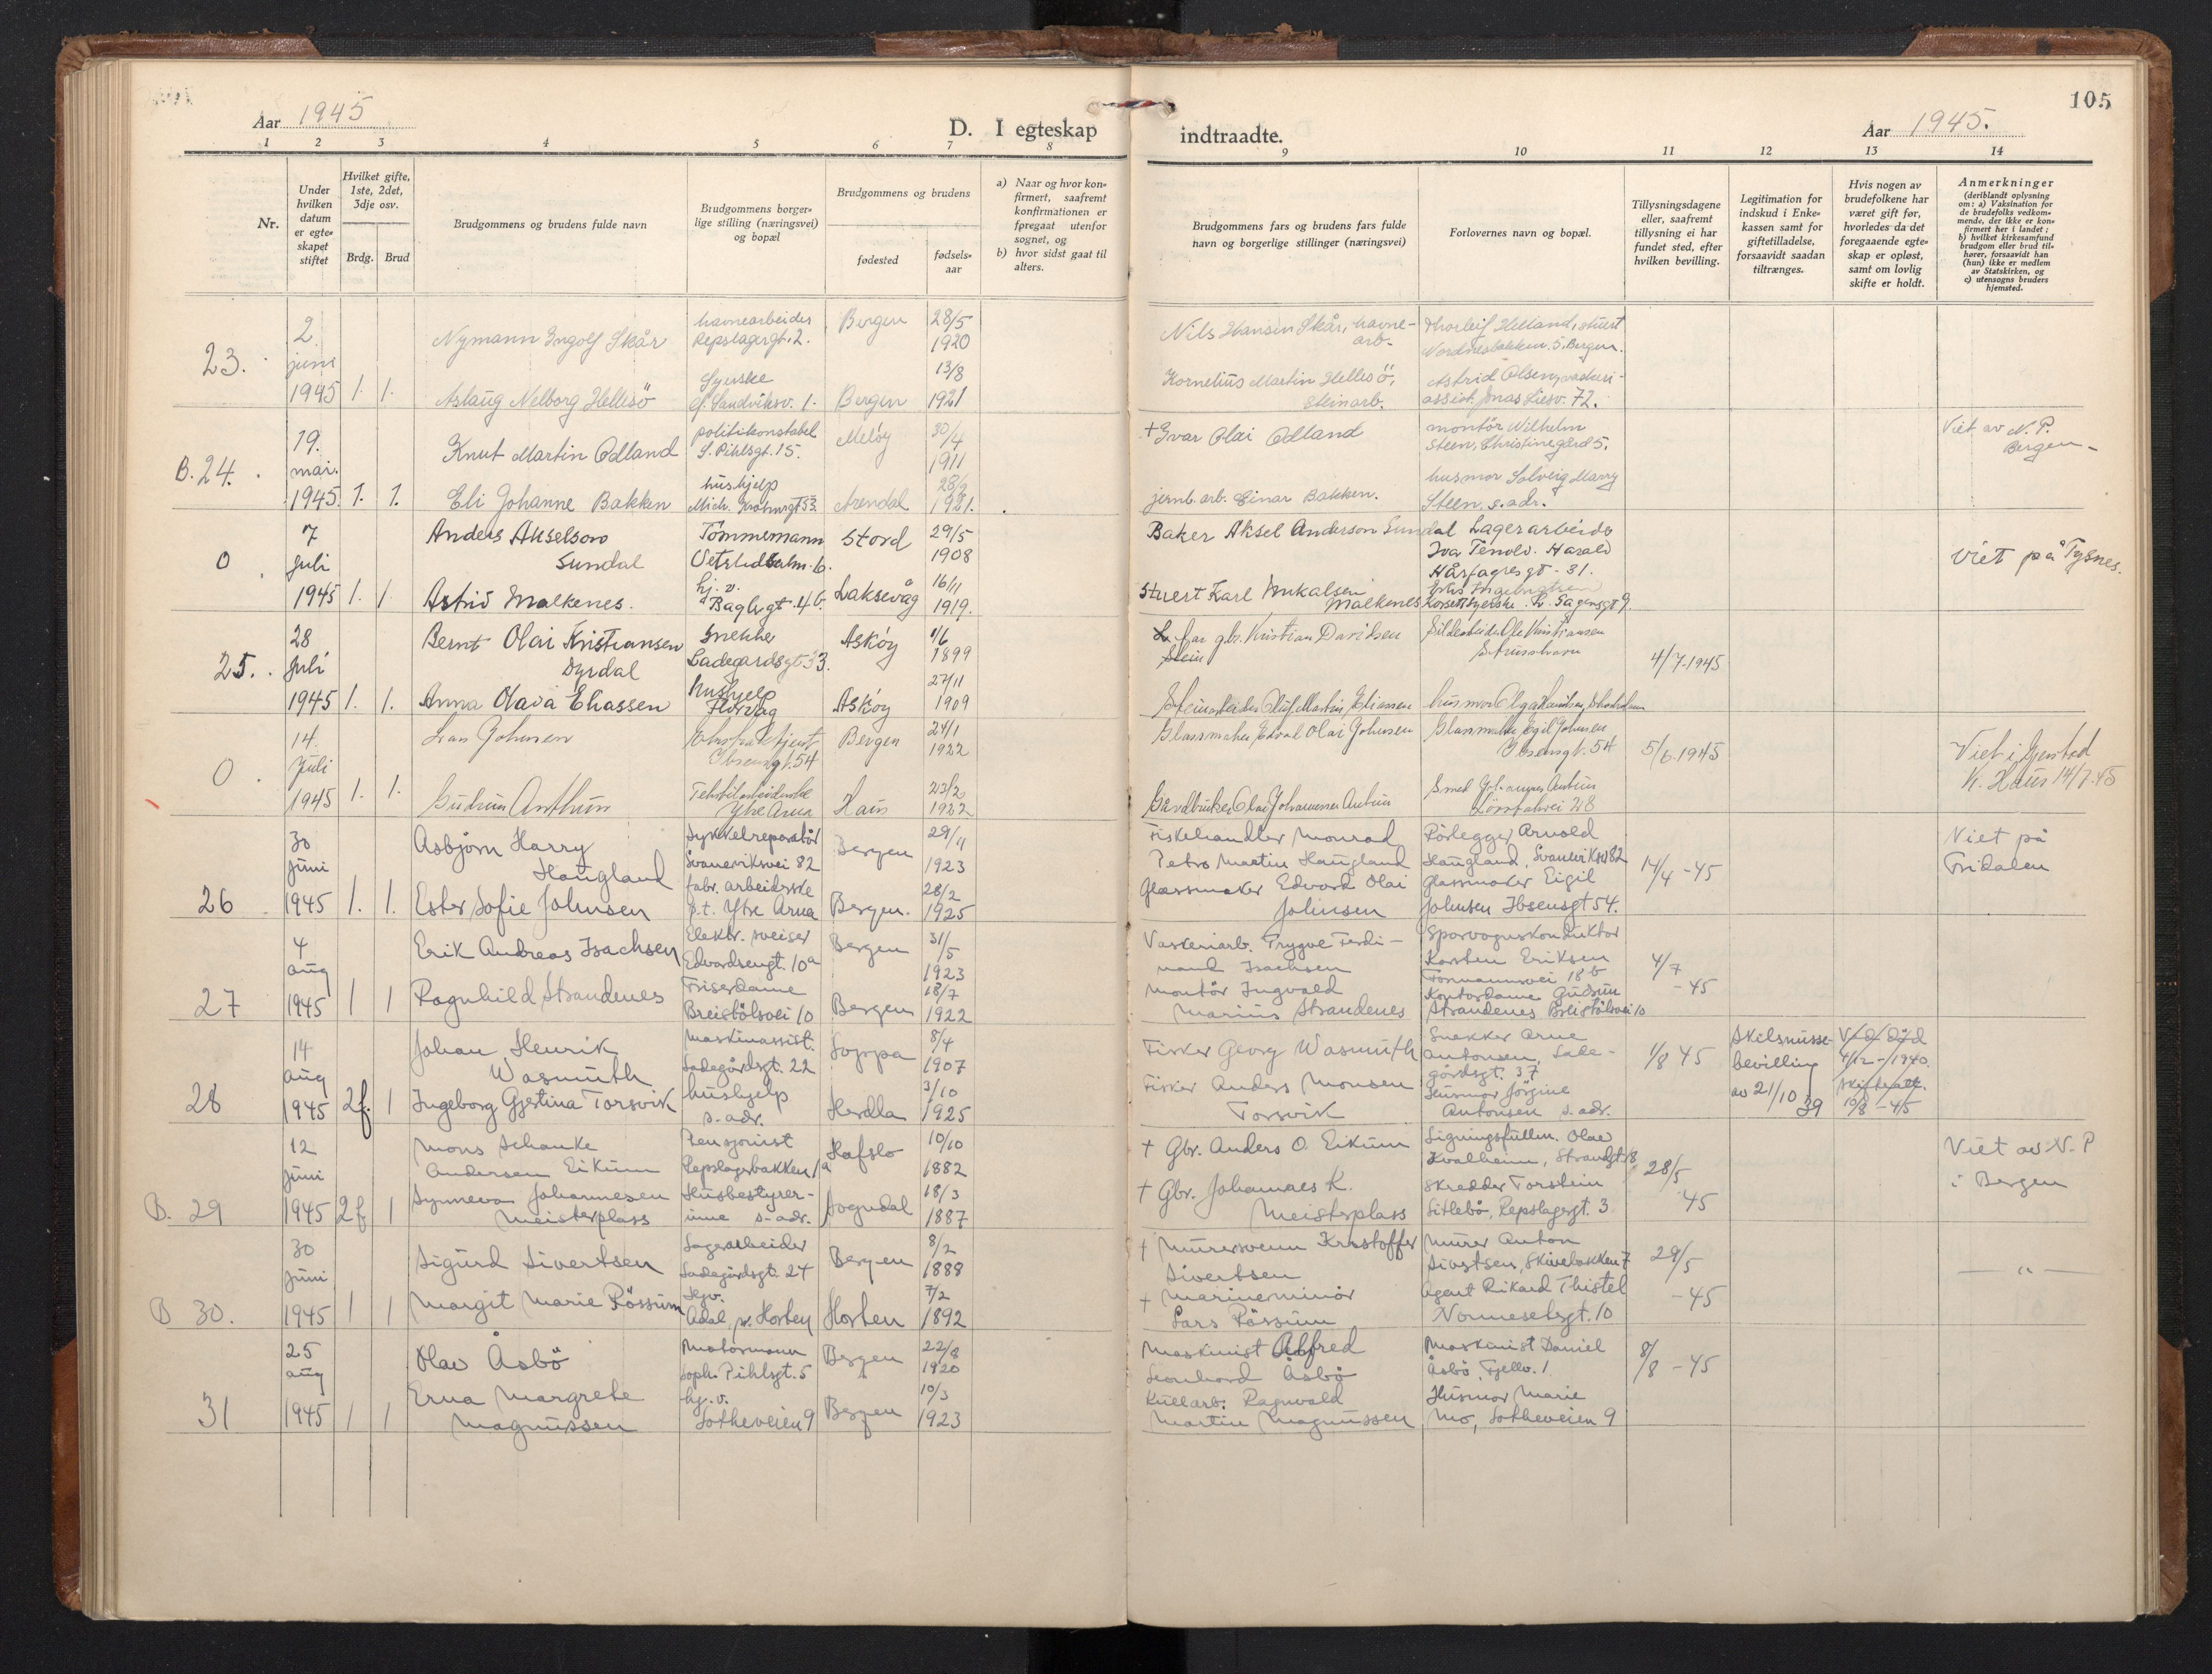 105
Aar 1945
D. I egteskap
indtraadte.
Aar 1945.
1 2 3 4 5 6 7 8
9 10 11 12 13 14
Nr.
Under
hvilken
datum
er egte-
skapet
stiftet
Hvilket gifte,
1ste, 2det,
3dje osv.
Brdg. Brud
Brudgommens og brudens fulde navn
Brudgommens borger-
lige stilling (næringsvei)
og bopæl
Brudgommens og brudens
fødested
fødsels-
aar
a) Naar og hvor kon-
firmert, saafremt
konfirmationen er
foregaat utenfor
sognet, og
b) hvor sidst gaat til
alters.
Brudgommens fars og brudens fars fulde
navn og borgerlige stillinger (næringsvei)
Forlovernes navn og bopæl.
Tillysningsdagene
eller, saafremt
tillysning ei har
fundet sted, efter
hvilken bevilling.
Legitimation for
indskud i Enke-
kassen samt for
giftetilladelse,
forsaavidt saadan
tiltrænges.
Hvis nogen av
brudefolkene har
været gift før,
hvorledes da det
foregaaende egte-
skap er opløst,
samt om lovlig
skifte er holdt.
Anmerkninger
(deriblandt oplysning
om: a) Vaksination for
de brudefolks vedkom-
mende, der ikke er kon-
firmert her i landet;
b) hvilket kirkesamfund
brudgom eller brud til-
hører, forsaavidt han
(hun) ikke er medlem
av Statskirken, og
c) utensogns bruders
hjemsted.
23.
2
juni
1945 1. 1.
Nymann Ingolf Skår
havnearbeider
Repslagergt. 2.
Bergen
28/5
1920
Aslaug Nelborg Hellesö
Syerske
Sandviksv. 1.
Bergen
13/8
1921
Nils Hansen Skår, havne-
arb.
Kornelius Martin Hellesö,
steinarb.
Thorleif Helland, stuert
Nordnesbakken. 5. Bergen.
Astrid Olsen, vaskeri-
assist. Jonas Liesv. 72.
B. 24.
19.
mai.
1945. 1. 1.
Knut Martin Odland
politikonstabel
S. Pihlsgt. 15.
Meløy
30/4
1911
Eli Johanne Bakken
hushjelp
Mich. Krohnsgt 53.
Arendal
1921.
+ Ivar Olai Odland
jernb. arb. Einar Bakken.
montör Wilhelm
Steen, Christinegård 5.
husmor Solveig Marry
Steen, s. adr.
Viet av N. P.
Bergen
0
7
Juli
1945 1. 1
Anders Akselson
Sundal
Tömmermann
Stord
29/5
1908
Astrid Malkenes.
hj. v.
Baglergt. 4b.
Laksevåg
16/11
1919.
Baker Aksel Anderson Sundal
Stuert Karl Mikalsen
Malkenes
Lagerarbeider
Harald
Hårfagresgt. 31.
Korsettsyerske
Viet på Tysnes.
25.
28
Juli
1945 1. 1.
Bernt Olai Kristiansen
Dyrdal
Snekker
Ladegårdsgt 33.
Askøy
1/6
1899
Anna Olava Eliassen
hushjelp
Florvåg
Askøy
27/11
1909
gbr. Kristian Davidsen
Steinarbeider Olaf Martin Eliassen
Sildearbeider Ole Kristiansen
Strusshavn
4/7-1945
0
14.
Juli
1945 1. 1.
Ivar Johnsen
Ibsensgt. 54
Bergen
24/1
1922
Gudrun Anthun
Tekstilarbeiderske
Ytre Arna
Haus
23/2
1922
Glassmaker Edval Olai Johnsen
Gårdbruker Olai Johannes Anthun
Glassmaker Egil Johnsen
Ibsensgt. 54
5/6. 1945
Viet i Gjerstad
K. Haus 14/7.45
26
30
Juni
1945 1. 1.
Asbjørn Harry
Haugland
Sykkelreparatör
Svaneviksvei 82
Bergen
29/11
1923
Ester Sofie Johnsen
fabr. arbeiderske
p.t. Ytre Arna
Bergen.
28/2
1925
Fiskehandler Monrad
Petro Martin Haugland
Glassmaker Edvard Olai
Johnsen
Rörlegger Arnold
Haugland, Svaneviksv 82
glassmaker Eigil
Johnsen Ibsensgt 54.
14/4 - 45
Viet på
Fridalen
27
4
aug
1945 1 1
Erik Andreas Isachsen
Elektr. sveiser
Edvardsensgt. 10a
Bergen
31/5
1923
Ragnhild Strandenes
Friserdame
Breistölsvei 10
Bergen
18/7
1922
Vaskeriarb. Trygve Ferdi-
nand Isachsen
Montör Ingvald
Marius Strandenes
Sporvognskonduktør
Karsten Eriksen
Formannsvei 18b
Kontordame Gudrun
Strandenes Breistölsvei 10
4/7
- 45
28
14
aug
1945 2f. 1
Johan Henrik
Wasmuth
Maskinassist.
Ladegårdsgt. 22
Loppa
8/4
1907
Ingeborg Gjertina Torsvik
hushjelp
s. adr.
Herdla
3/10
1925
Fisker Georg Wasmuth
Fisker Anders Monsen
Torsvik
Snekker Arne
Antonsen, Lade-
gårdsgt. 37
Husmor Jörgine
Antonsen s. adr.
1/8 45
Skilsmisse-
bevilling
av 21/10 39
4/12-1940.
Skifteatt.
10/8 - 45
B. 29
12
Juni
1945 2f 1
Mons Schanke
Andersen Eikum
Pensjonist
Repslagerbakken 1a
Hafslo
10/10
1882
Synneva Johannesen
Meisterplass
Husbestyrer-
inne s. adr.
Sogndal
18/3
1887
+ Gbr. Anders O. Eikum
+ Gbr. Johannes K.
Meisterplass
Ligningsfullm. Olav
Kvalheim, Strandgt 18
Skredder Torstein
Sitlebö, Repslagergt. 3
28/5
45
Viet av N. P
i Bergen
B 30.
30
Juni
1945 1 1
Sigurd Sivertsen
Lagerarbeider
Ladegårdsgt. 24
Bergen
8/2
1888
Margit Marie Rössum
Hjv.
Adal, pr. Horten
Horten
7/2
1892
+ Murersvenn Kristoffer
Sivertsen
+ Marineminör
Lars Rössum
Murer Anton
Sivertsen, Skivebakken 7
Agent Rikard Thistel
Normeselsgt. 10
29/5
- 45
— " —
31
25
aug
1945 1 1
Olav Åsbö
Motormann
Soph. Pihlsgt. 5
Bergen
22/8
1920
Erna Margrete
Magnussen
hj. v.
Lotheveien 9
Bergen
10/3
1923
Maskinist Alfred
Leonhard Åsbö
Kullarb. Ragnvald
Martin Magnussen
Maskinist Daniel
Åsbö, Fjellv. 1
Husmor Marie
Mo, Lotheveien 9
8/8 - 45